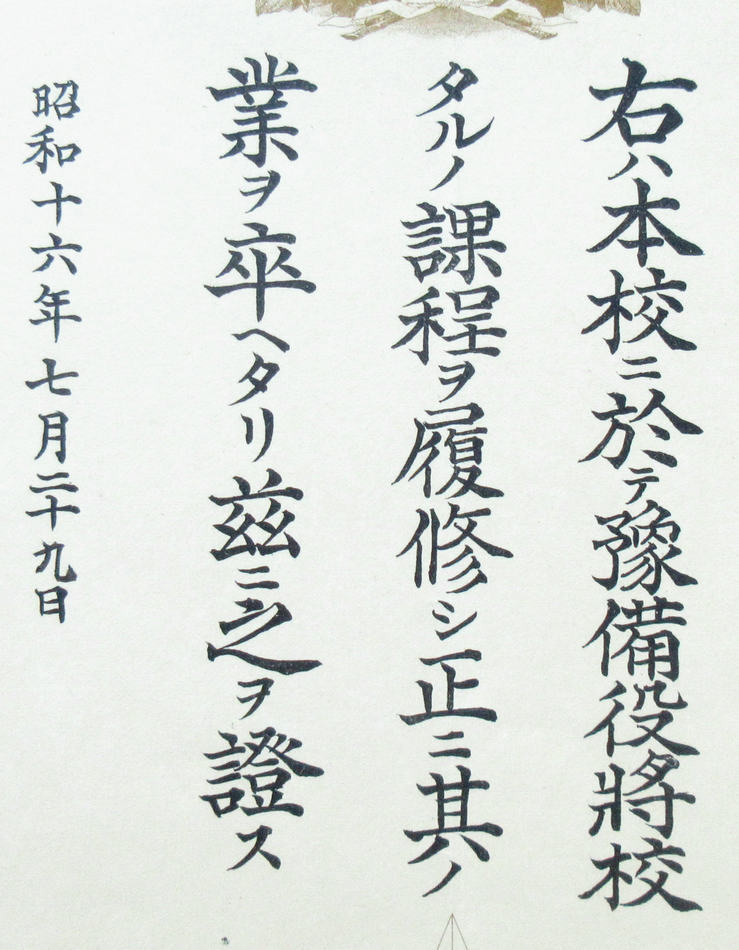 右ハ本校ニ於テ豫備役將校
タルノ課程ヲ履修シ正ニ其ノ
業ヲ卒ヘタリ茲ニ之ヲ證ス
昭和十六年七月二十九日